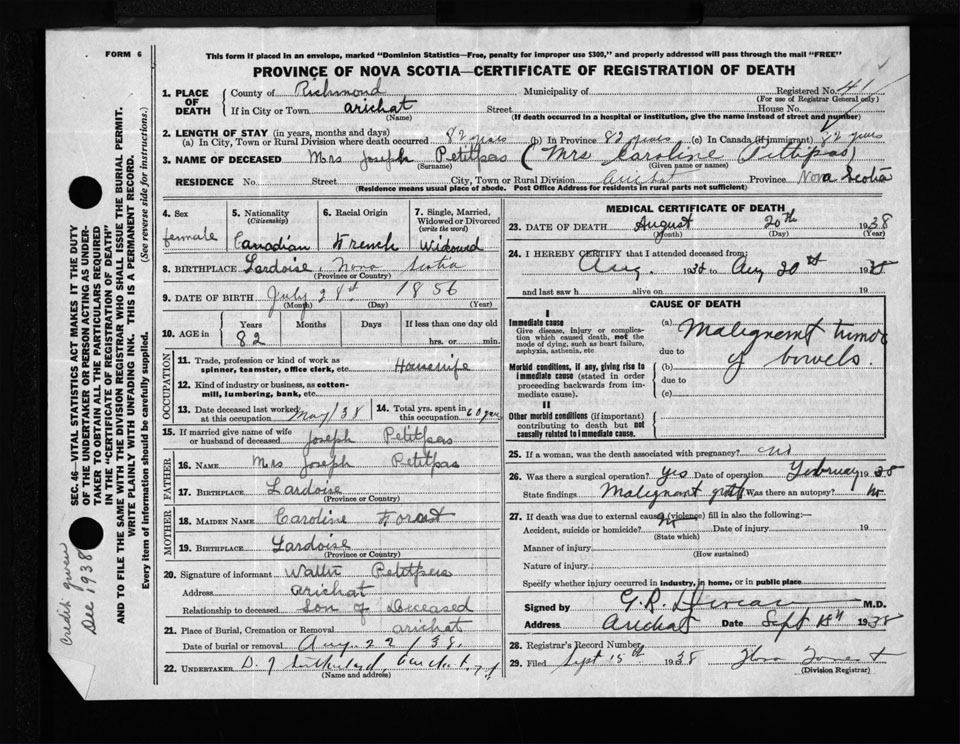 FORM 6
This form if placed in an envelope, marked "Dominion Statistics—Free, penalty for improper use $300," and properly addressed will pass through the mail "FREE"
PROVINCE OF NOVA SCOTIA—CERTIFICATE OF REGISTRATION OF DEATH
1. PLACE OF DEATH
County of Richmond Municipality of Registered No. 41
(For use of Registrar General only)
If in City or Town Arichat Street House No.
(Name) (If death occurred in a hospital or institution, give the name instead of street and number)
2. LENGTH OF STAY (in years, months and days)
(a) In City, Town or Rural Division where death occurred 82 years (b) In Province 82 years (c) In Canada (if immigrant) 82 years
3. NAME OF DECEASED Mrs Joseph Petitpas (Mrs Caroline Pittipas)
(Surname) (Given name or names)
RESIDENCE No. Street City, Town or Rural Division Arichat Province Nova Scotia
(Residence means usual place of abode. Post Office Address for residents in rural parts not sufficient)
4. Sex female
5. Nationality (Citizenship) Canadian
6. Racial Origin French
7. Single, Married, Widowed or Divorced (write the word) Widowed
8. BIRTHPLACE Lardoise, Nova Scotia
(Province or Country)
9. DATE OF BIRTH July 28 1856
(Month) (Day) (Year)
10. AGE in Years Months Days If less than one day old
82 hrs. or min.
OCCUPATION
11. Trade, profession or kind of work as spinner, teamster, office clerk, etc. Housewife
12. Kind of industry or business, as cotton-mill, lumbering, bank, etc.
13. Date deceased last worked at this occupation May/38
14. Total yrs. spent in this occupation 60 yrs
15. If married give name of wife or husband of deceased Joseph Petitpas
FATHER
16. NAME Mrs Joseph Petitpas
17. BIRTHPLACE Lardoise
(Province or Country)
MOTHER
18. MAIDEN NAME Caroline Forest
19. BIRTHPLACE Lardoise
(Province or Country)
20. Signature of informant Walter Petitpas
Address Arichat
Relationship to deceased Son of Deceased
21. Place of Burial, Cremation or Removal Arichat
Date of burial or removal Aug 22/38.
22. UNDERTAKER D. J
(Name and address)
MEDICAL CERTIFICATE OF DEATH
23. DATE OF DEATH August 20th 1938
(Month) (Day) (Year)
24. I HEREBY CERTIFY that I attended deceased from:
Aug. 1938 to Aug 20th 1938
and last saw h alive on 19
CAUSE OF DEATH
I
Immediate cause
Give disease, injury or complication which caused death, not the mode of dying, such as heart failure, asphyxia, asthenia, etc
(a) Malignant tumor
due to of bowels.
Morbid conditions, if any, giving rise to immediate cause (stated in order proceeding backwards from immediate cause).
(b)
due to
(c)
II
Other morbid conditions (if important) contributing to death but not causally related to immediate cause.
25. If a woman, was the death associated with pregnancy? No
26. Was there a surgical operation? Yes Date of operation February 1938
State findings Malignant growth Was there an autopsy? No.
27. If death was due to external causes (violence) fill in also the following:— No
Accident, suicide or homicide? Date of injury 19
(State which)
Manner of injury
(How sustained)
Nature of injury
Specify whether injury occurred in industry, in home, or in public place
Signed by G.R. M.D.
Address Arichat Date Sept 1938
28. Registrar's Record Number
29. Filed Sept 15th 1938
(Division Registrar)
SEC. 46—VITAL STATISTICS ACT MAKES IT THE DUTY
OF THE UNDERTAKER OR PERSON ACTING AS UNDER-
TAKER TO OBTAIN ALL THE PARTICULARS REQUIRED
IN THE "CERTIFICATE OF REGISTRATION OF DEATH"
AND TO FILE THE SAME WITH THE DIVISION REGISTRAR WHO SHALL ISSUE THE BURIAL PERMIT.
WRITE PLAINLY WITH UNFADING INK. THIS IS A PERMANENT RECORD.
Every item of information should be carefully supplied. (See reverse side for instructions.)
Credit given
Dec, 1938